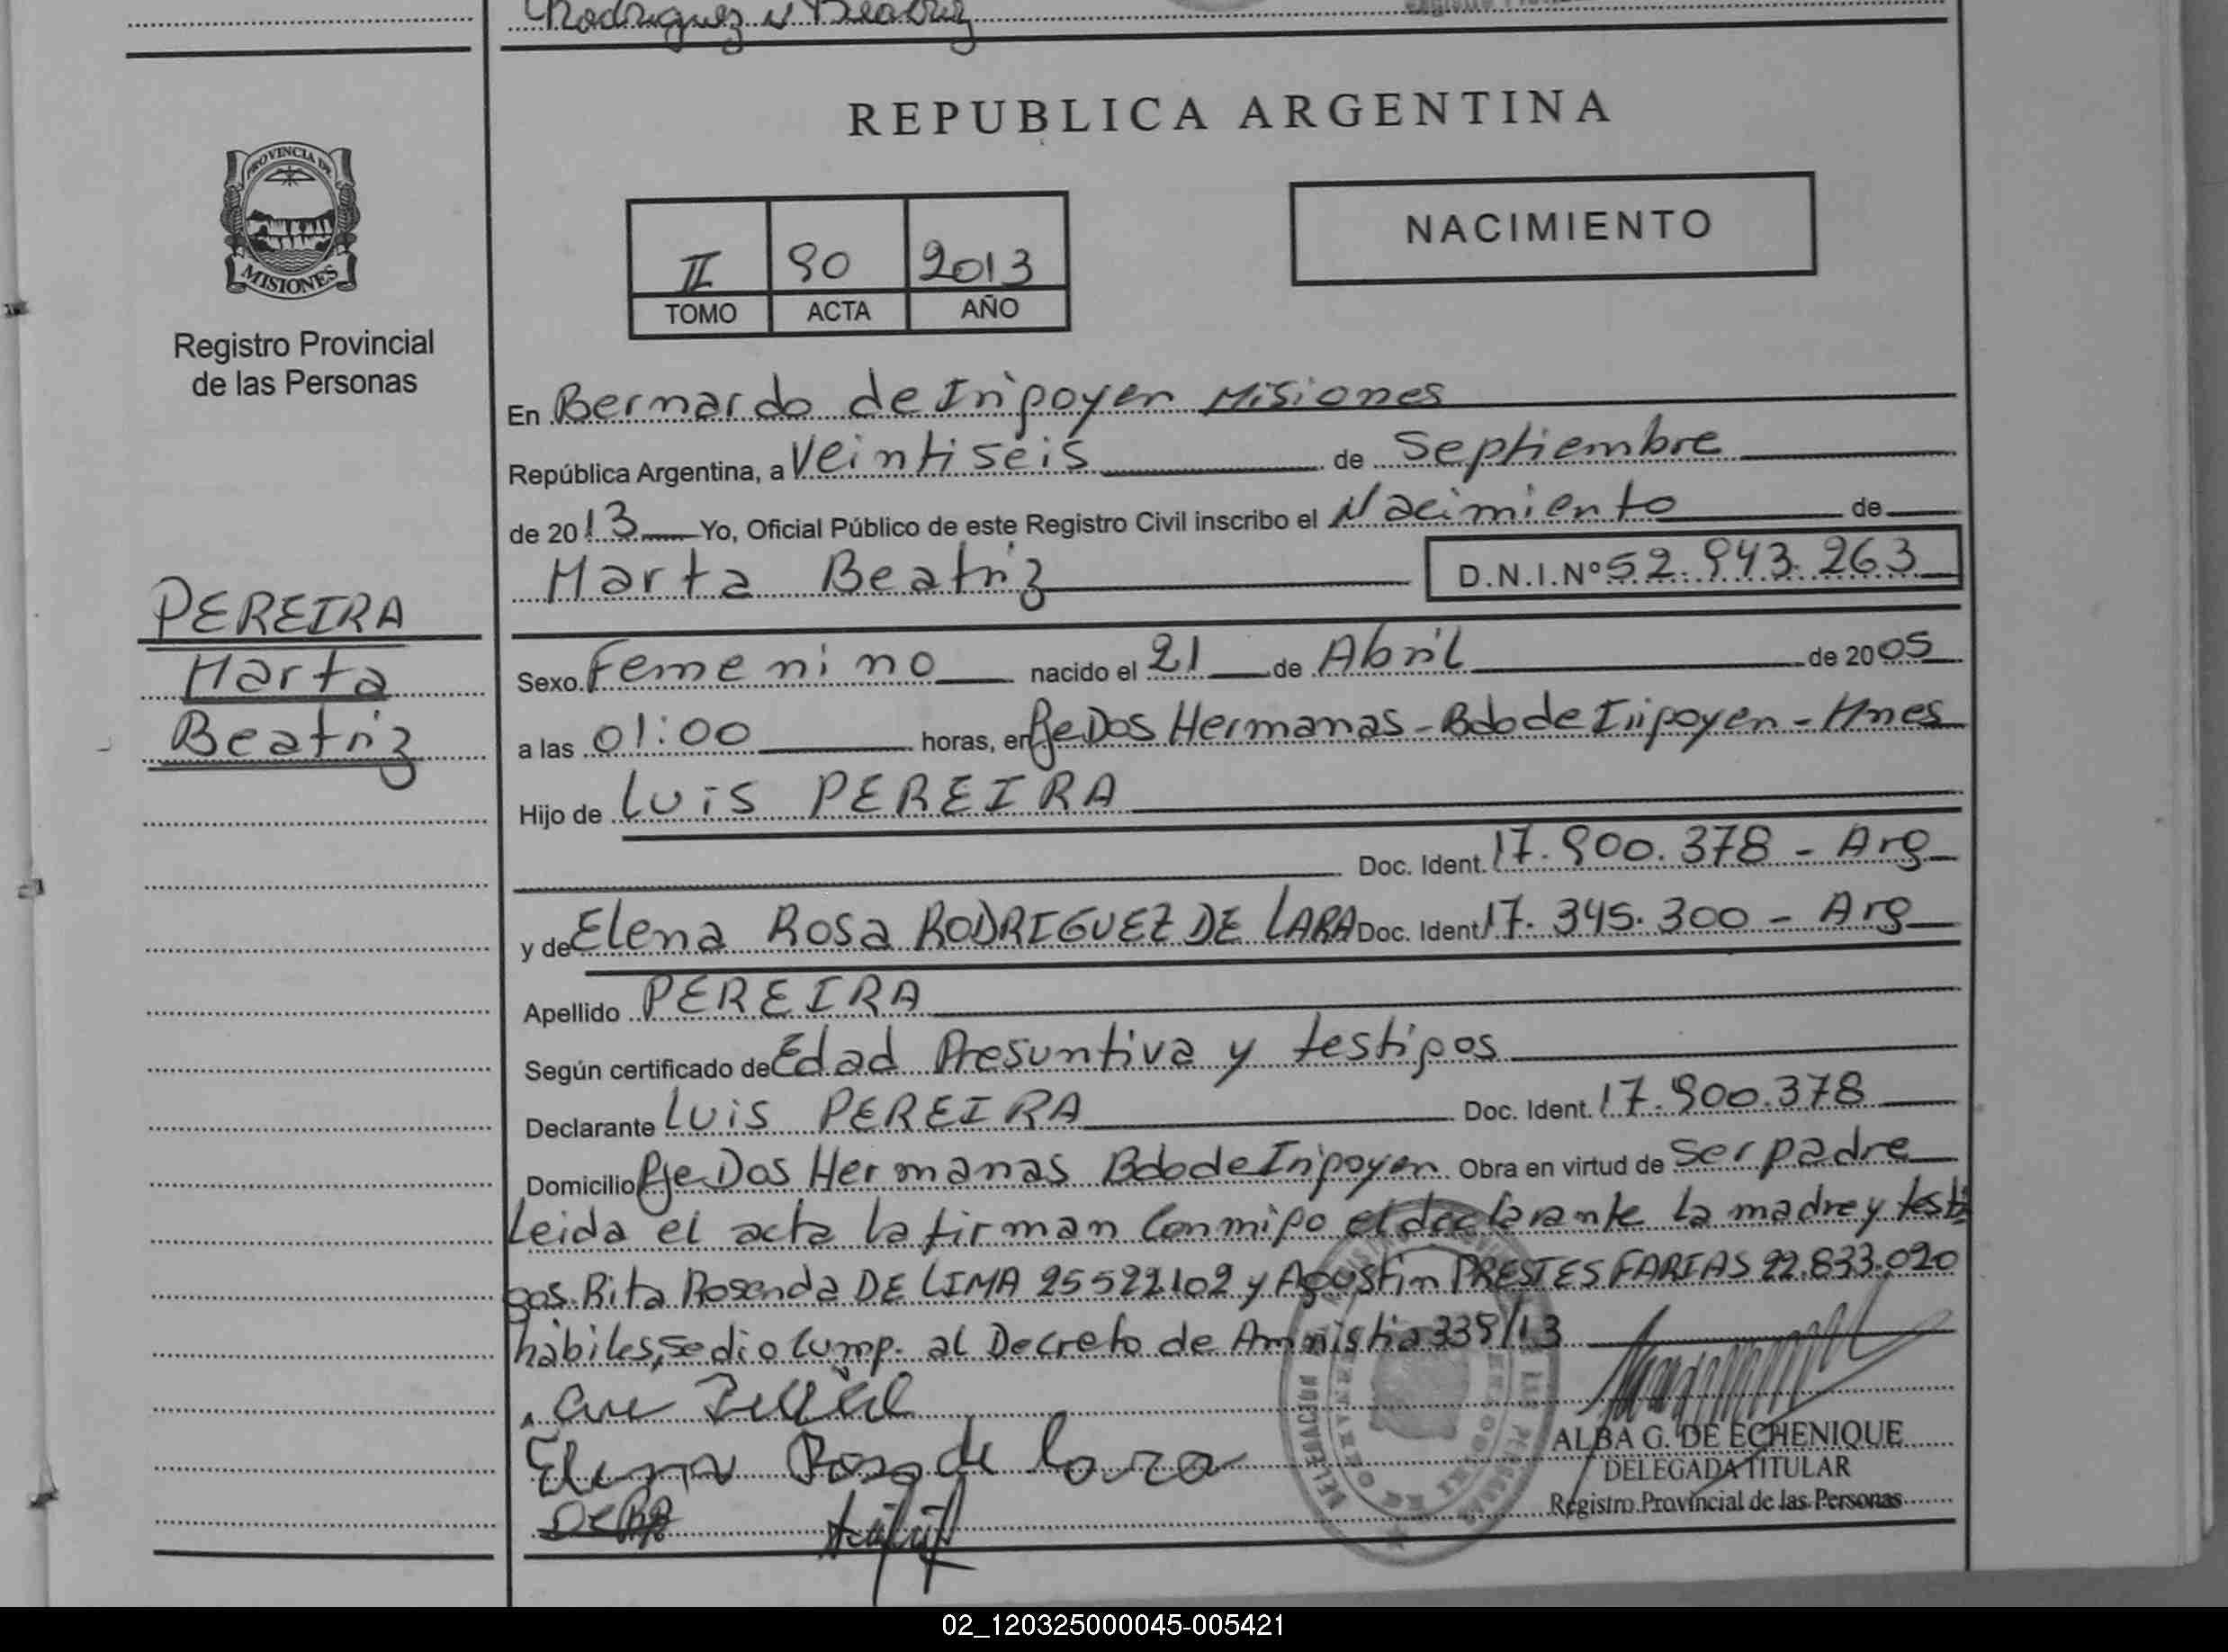 Rodriguez N Beatriz
REPUBLICA ARGENTINA
PROVINCIA DE
MISIONES
Registro Provincial
de las Personas
II 90 2013
TOMO ACTA AÑO
NACIMIENTO
En Bernardo de Irigoyen Misiones
República Argentina, a Veintiseis de Septiembre
de 2013 Yo, Oficial Público de este Registro Civil inscribo el Nacimiento de
Marta Beatriz D.N.I.Nº 52.943.263
PEREIRA
Marta
Beatriz
Sexo Femenino nacido el 21 de Abril de 2005
a las 01:00 horas, en Pje Dos Hermanas - Bdo de Irigoyen - Mnes
Hijo de Luis PEREIRA
Doc. Ident. 17.900.378 - Arg
y de Elena Rosa RODRIGUEZ DE LARA Doc. Ident. 17.345.300 - Arg
Apellido PEREIRA
Según certificado de Edad Presuntiva y testigos
Declarante Luis PEREIRA Doc. Ident. 17.900.378
Domicilio Pje Dos Hermanas Bdo de Irigoyen Obra en virtud de ser padre
Leida el acta la firman conmigo el declarante la madre y testi
gos Rita Rosenda DE LIMA 25522102 y Agustin PRESTES FARIAS 22.833.020
hábiles, se dio cump. al Decreto de Amnistia 339/13
Elena Rosa de Lara
ALBA G. DE ECHENIQUE
DELEGADA TITULAR
Registro Provincial de las Personas
02_120325000045-005421